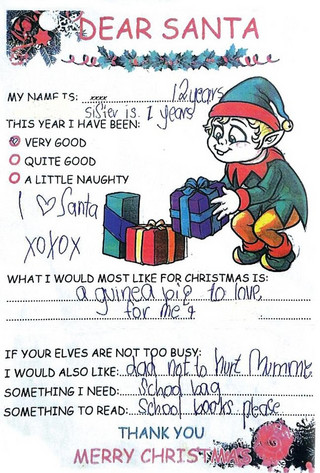 DEAR SANTA
MY NAME IS: xxxx 12 years
sister is 1 years
THIS YEAR I HAVE BEEN:
VERY GOOD
QUITE GOOD
A LITTLE NAUGHTY
I ♡ Santa
xoxox
WHAT I WOULD MOST LIKE FOR CHRISTMAS IS:
a guinea pig to love
for me &
IF YOUR ELVES ARE NOT TOO BUSY:
I WOULD ALSO LIKE: dad not to hurt Mummy
SOMETHING I NEED: School bag
SOMETHING TO READ: School books please
THANK YOU
MERRY CHRISTMAS